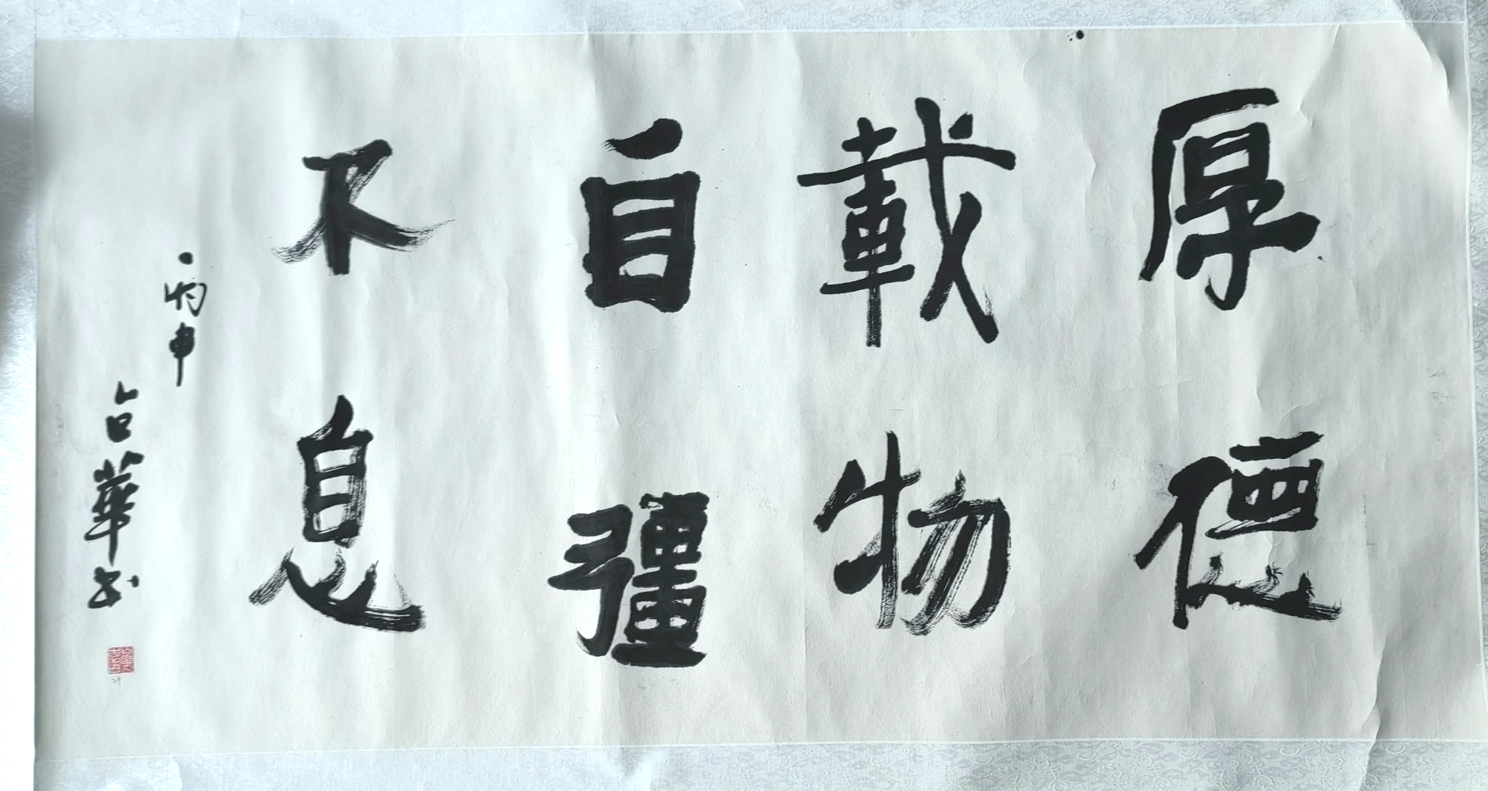 厚德
載物
自彊
不息
丙申
占華书